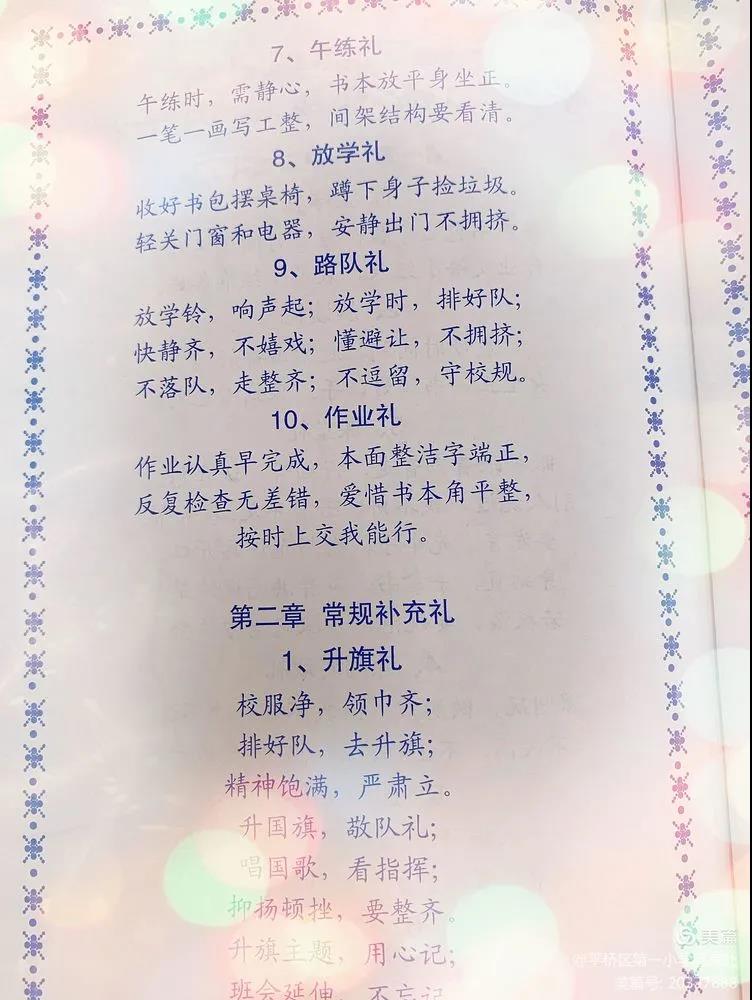 7、午练礼
午练时，需静心，书本放平身坐正。
一笔一画写工整，间架结构要看清。
8、放学礼
收好书包摆桌椅，蹲下身子捡垃圾。
轻关门窗和电器，安静出门不拥挤。
9、路队礼
放学铃，响声起；放学时，排好队；
快静齐，不嬉戏；懂避让，不拥挤；
不落队，走整齐；不逗留，守校规。
10、作业礼
作业认真早完成，本面整洁字端正，
反复检查无差错，爱惜书本角平整，
按时上交我能行。
第二章 常规补充礼
1、升旗礼
校服净，领巾齐；
排好队，去升旗；
精神饱满，严肃立。
升国旗，敬队礼；
唱国歌，看指挥；
抑扬顿挫，要整齐。
升旗主题，用心记；
班会延伸，不忘记
美篇
@平桥区第一小
美篇号: